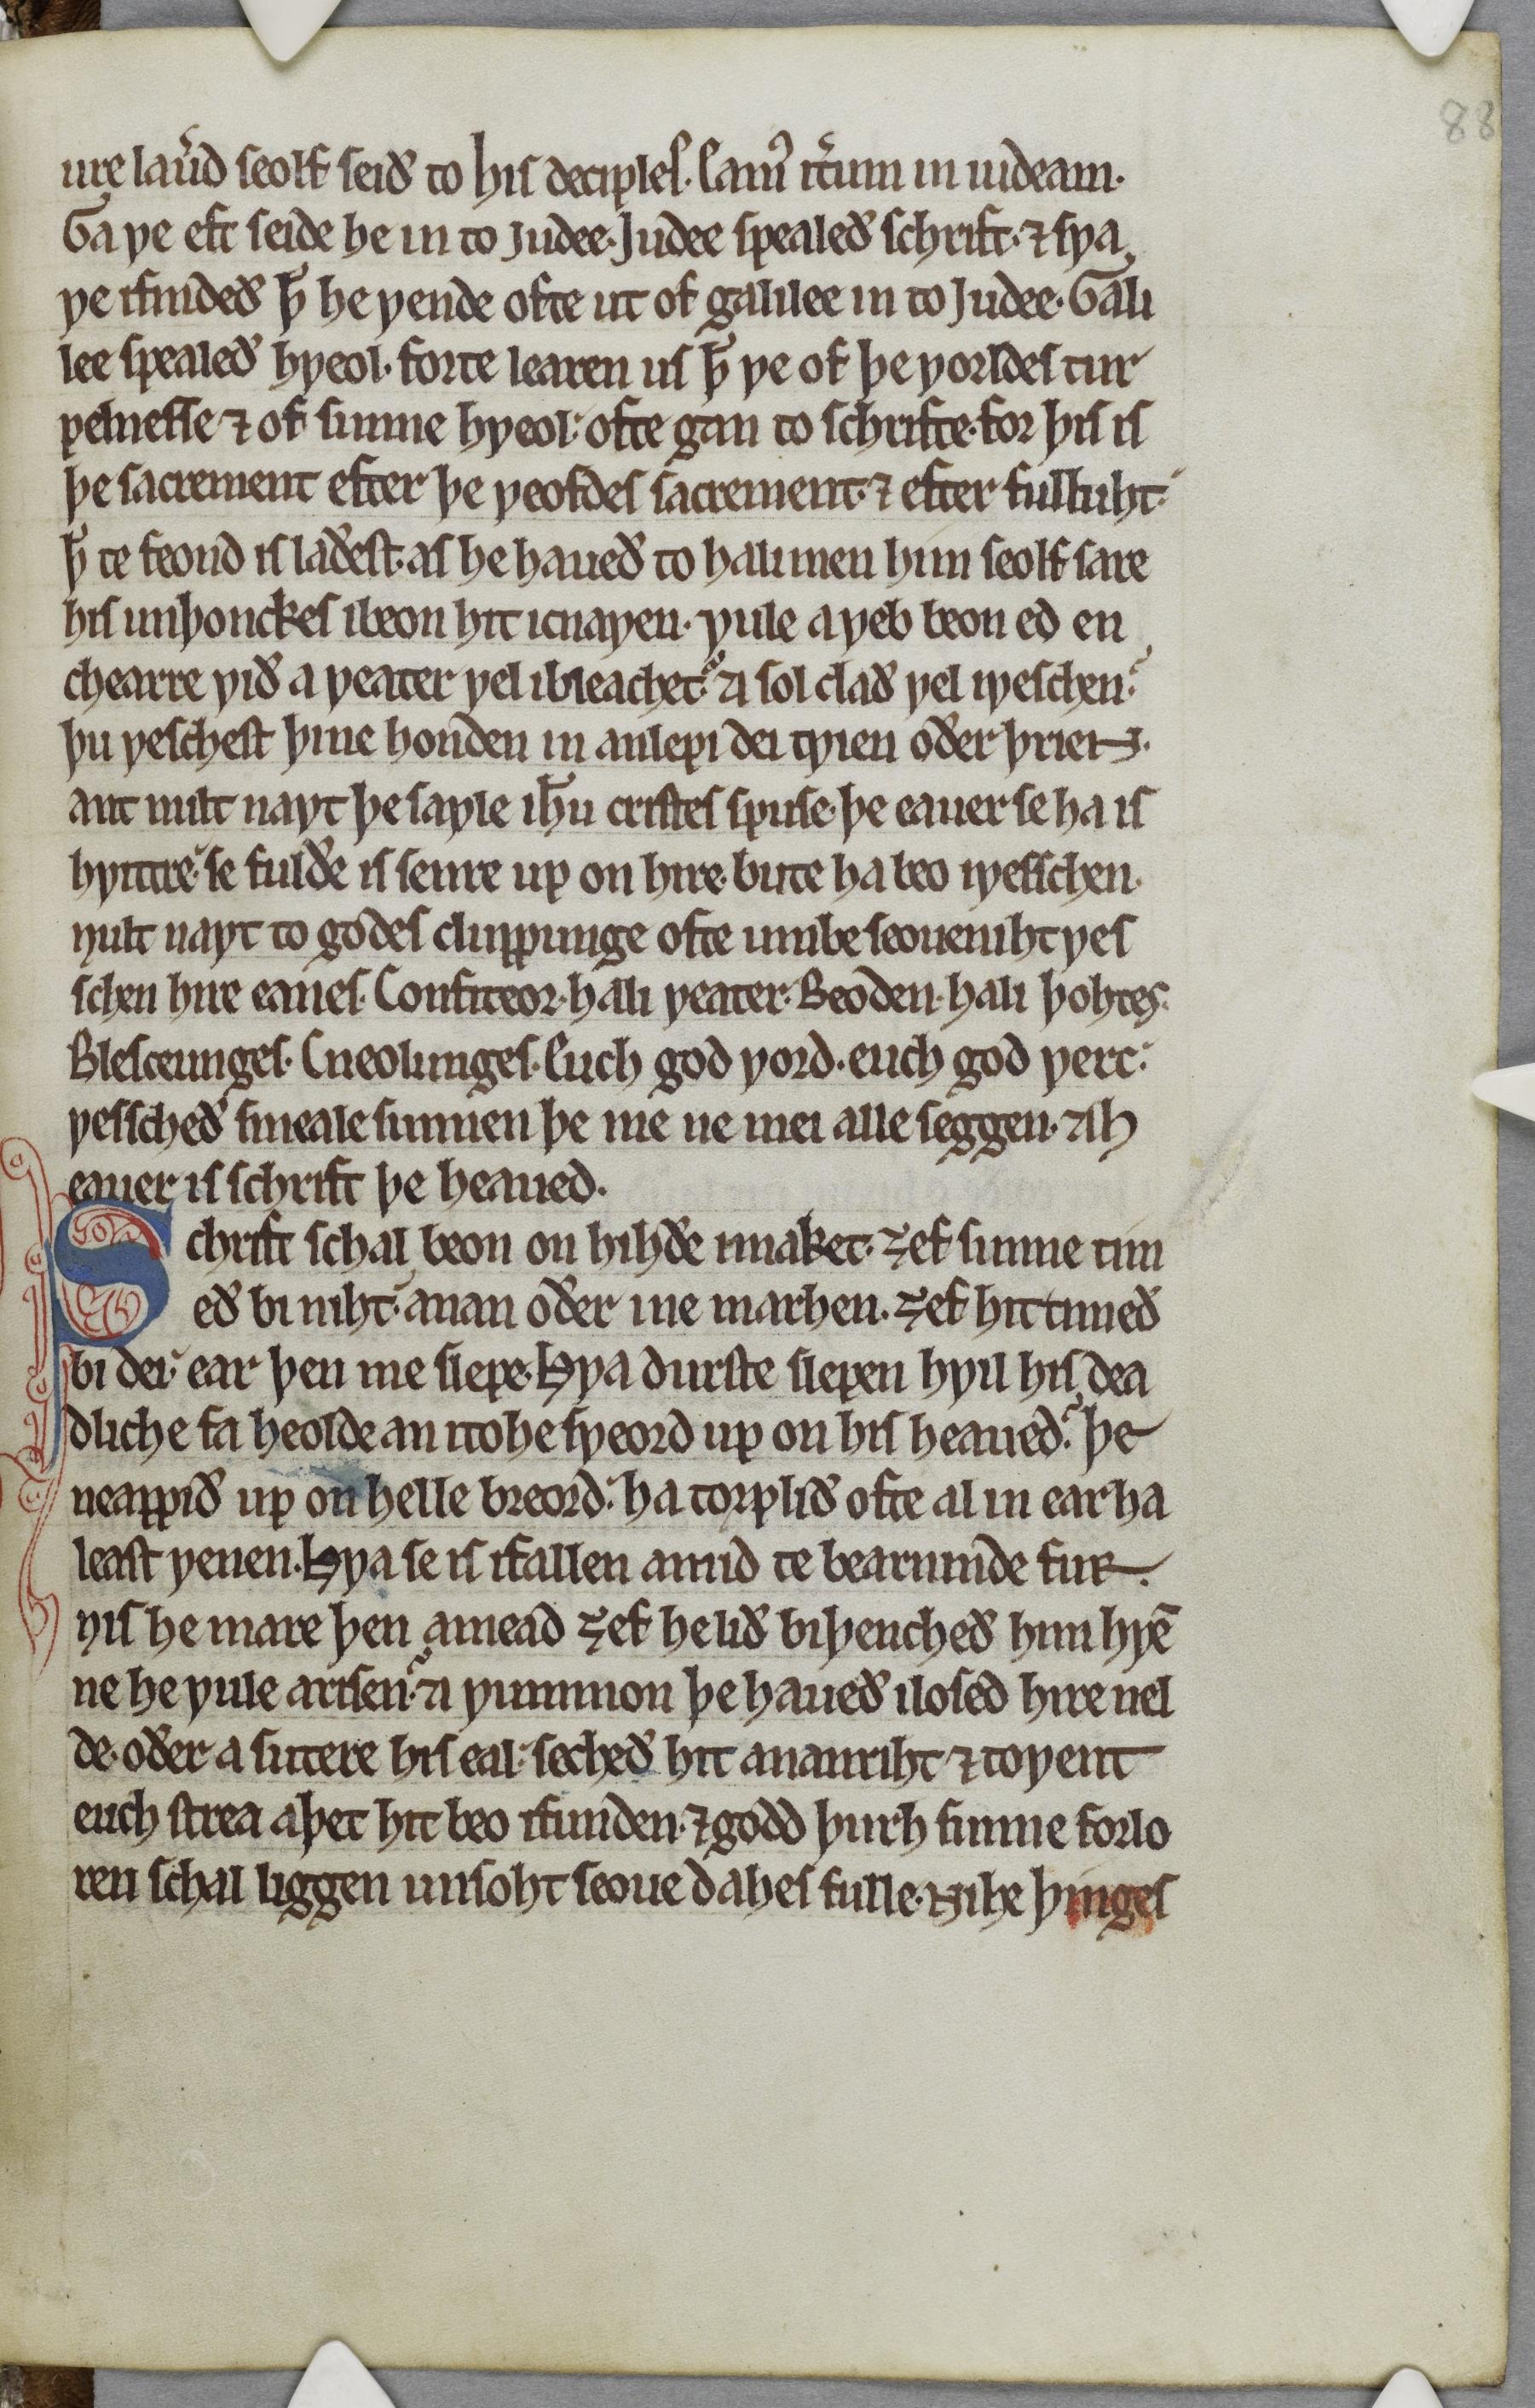 88
ure lau͛d seolf seið to his deciples. Eam᷒ it͛um in iudeam.
Ga ƿe eft seide he in to Judee. Judee spealeð schrift. ⁊ sƿa
ƿe ifindeð ꝥ he ƿende ofte ut of galilee in to Judee. Gali
lee spealeð hƿeol. forte learen us ꝥ ƿe of þe ƿorldes tur
pelnesse ⁊ of sunne hƿeol: ofte gan to schrifte. for þis is
þe sacrement efter þe ƿeofdes sacrement. ⁊ efter fulluht:
ꝥ te feond is laðest. as he haueð to hali men him seolf sare
his unþonckes ibeon hit icnaƿen. ƿule a ƿeb beon ed en
chearre ƿið a ƿeater ƿel ibleachet? A sol clað ƿel iƿeschen?
þu ƿeschest þine honden in anlepi dei tƿien oðer þrien.
ant nult naƿt þe saƿle ih̅u cristes spuse. þe eauer se ha is
hƿittre: se fulðe is senre up on hire. bute ha beo iƿesschen.
nult naƿt to godes cluppunge ofte umbe seoueniht ƿes
schen hire eanes. Confiteor. hali ƿeater. Beoden. hali þohtes.
Blesceunges. Cneolunges. Euch god ƿord. euch god ƿerc:
ƿesscheð smeale sunnen þe me ne mei alle seggen. Ah
eauer is schrift þe heaued.
Schrift schal beon on hihðe imaket. Ȝef sunne tim
eð bi niht: anan oðer ine marhen. Ȝef hit timeð
bi dei: ear þen me slepe. Hƿa durste slepen hƿil his dea
dliche fa heolde an itohe sƿeord up on his heaued? þe
neappið up on helle breord: ha torplið ofte al in ear ha
least ƿenen. Hƿa se is ifallen amid te bearninde fur.
nis he mare þen amead ȝef he lið biþencheð him hƿe̅
ne he ƿule arisen? A ƿummon þe haueð ilosed hire nel
de. oðer a sutere his eal: secheð hit ananriht ⁊ toƿent
euch strea aþet hit beo ifunden. ⁊ godd þurh sunne forlo
ren schal liggen unsoht seoue dahes fulle. Nihe þinges